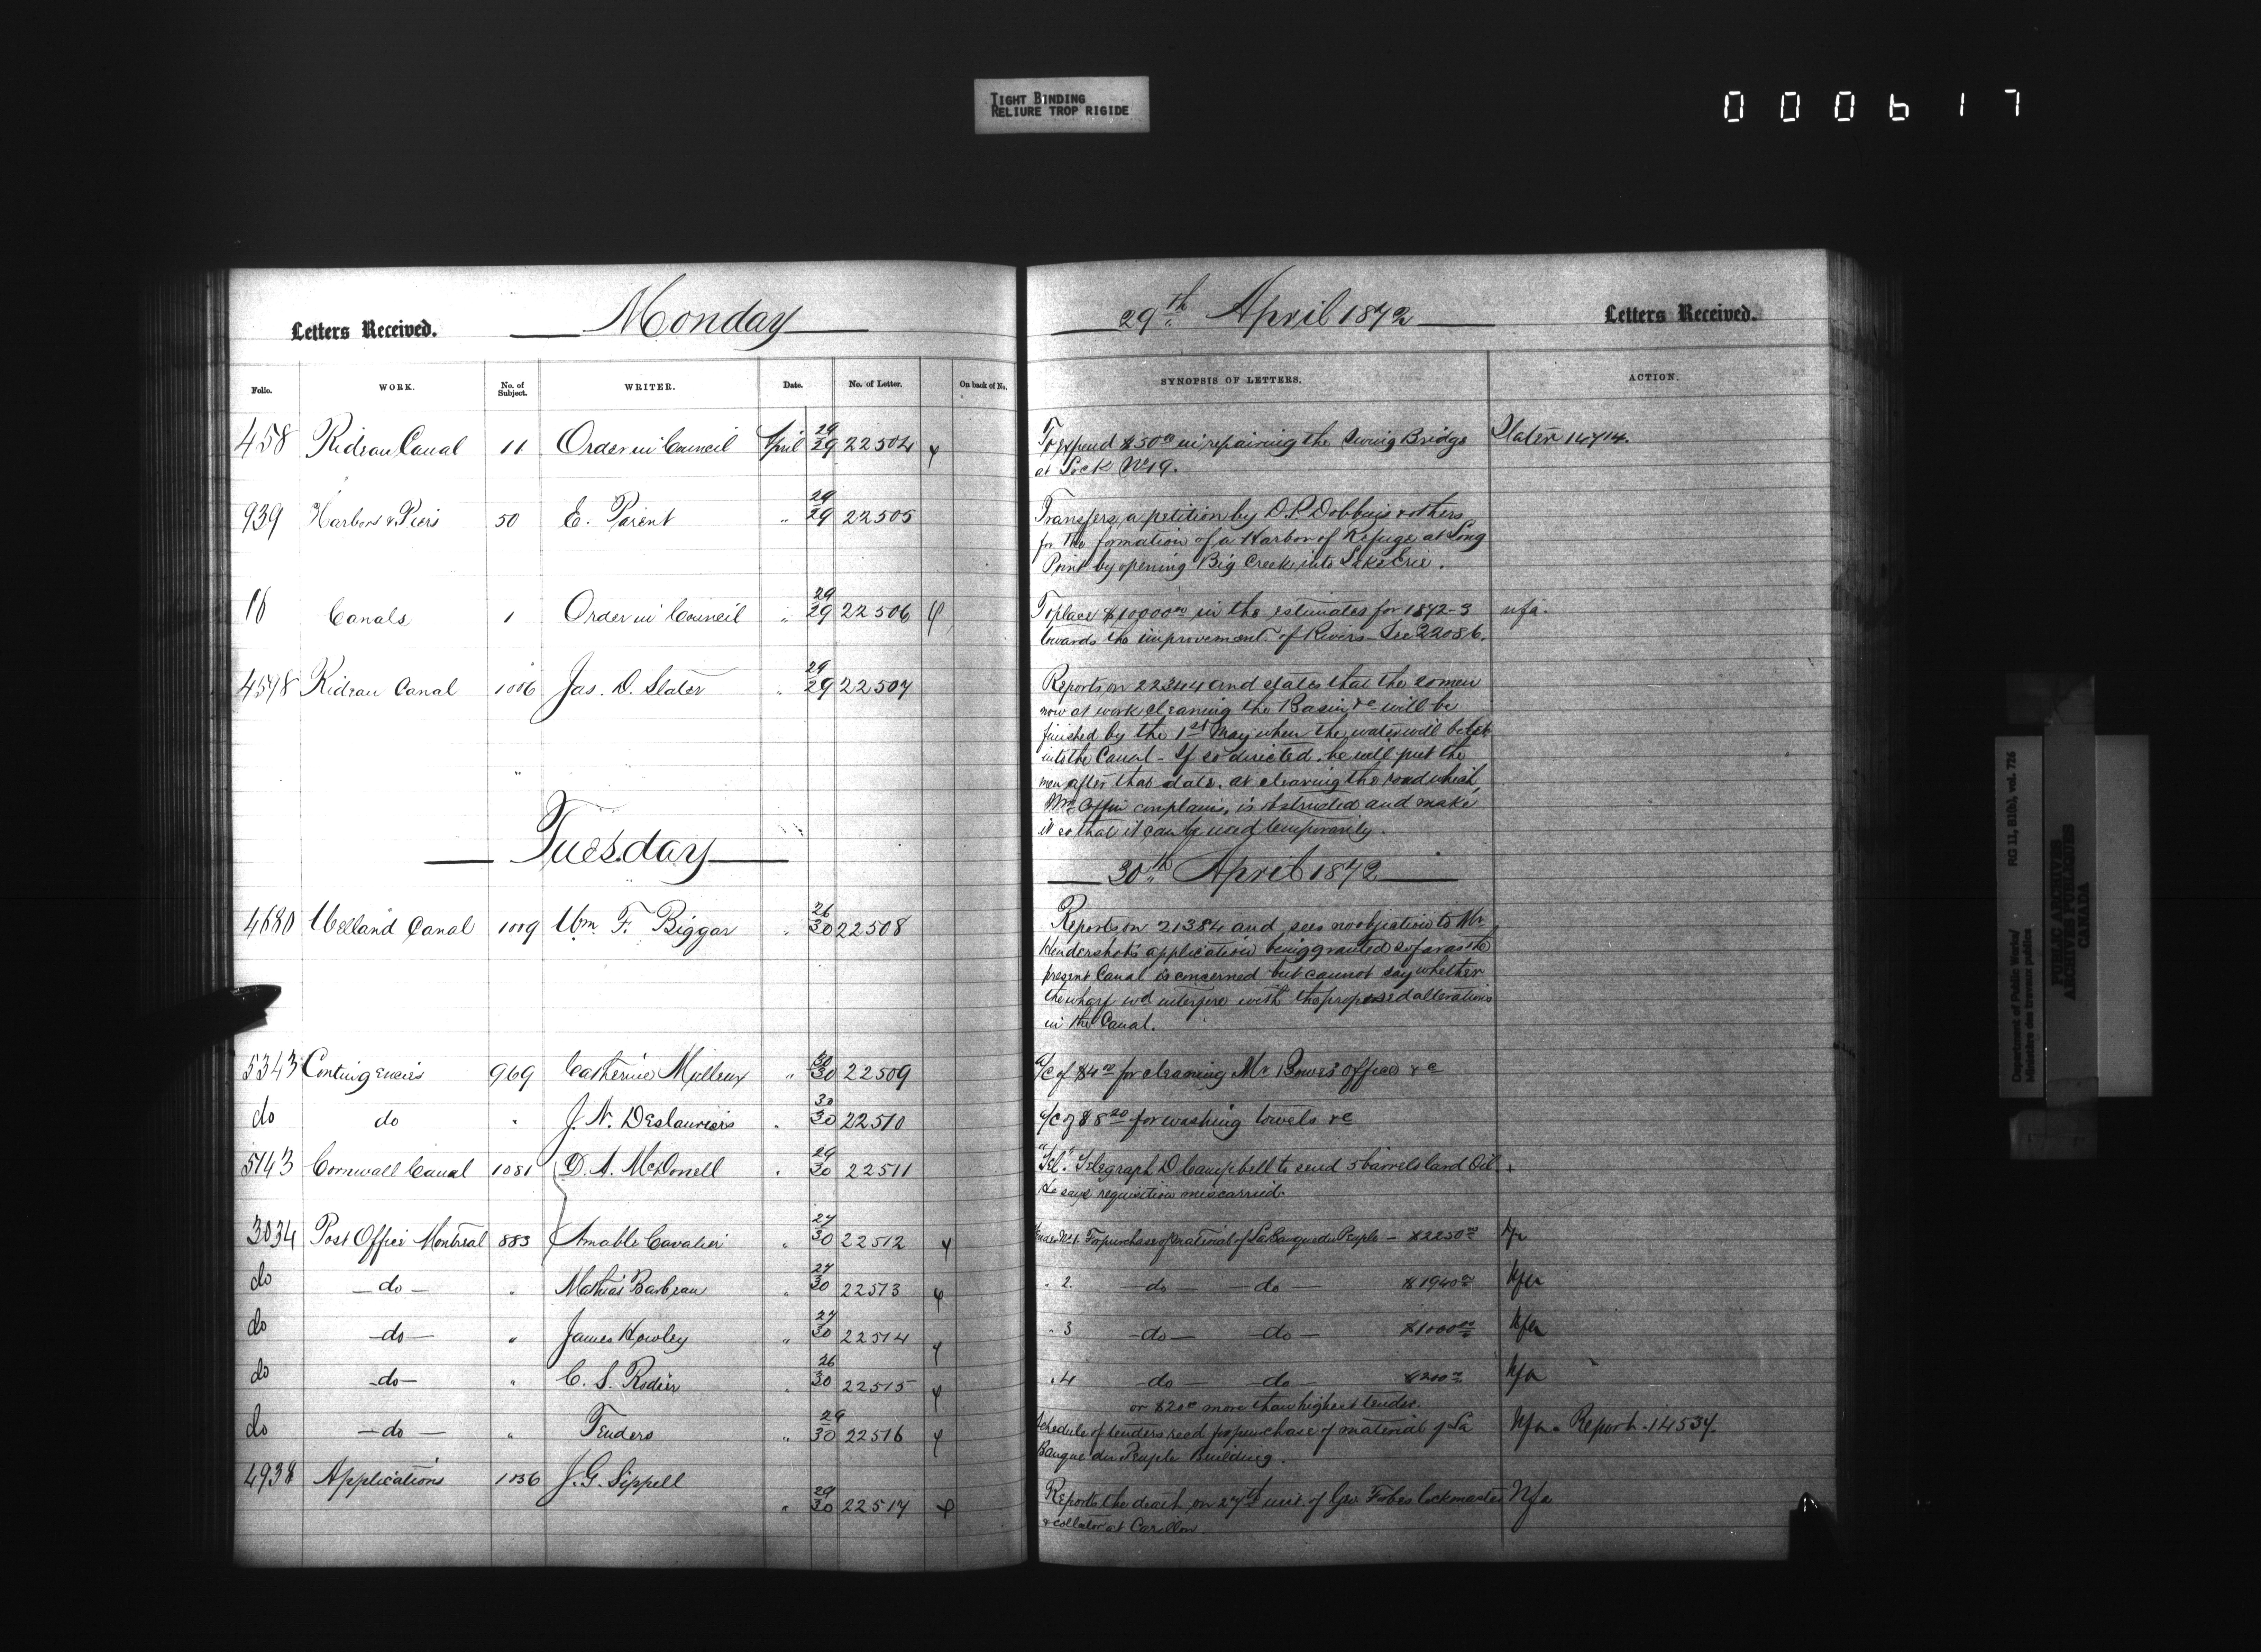 TIGHT BINDING
RELIURE TROP RIGIDE
000617
Letters Received. Monday
Folio. WORK. No. of Subject. WRITER. Date. No. of Letter. On back of No.
458 Rideau Canal 11 Order in Council April 29/29 22504
939 Harbors & Piers 50 E. Parent " 29/29 22505
16 Canals 1 Order in Council " 29/29 22506
4598 Rideau Canal 1006 Jas. D. Slater " 29/29 22507
Tuesday
4680 Welland Canal 1009 Wm. F. Biggar " 26/30 22508
5343 Contingencies 969 Catherine " 30/30 22509
do do " J. N. Deslauriers " 30/30 22510
5143 Cornwall Canal 1081 D. A. McDonell " 29/30 22511
3034 Post Office Montreal 883 Amable Cavalier " 27/30 22512
do — do — " Mathias Barbeau " 27/30 22513
do — do — " James Howley " 27/30 22514
do — do — " C. S. Rodier " 26/30 22515
do — do — " Tenders " 29/30 22516
4938 Applications 1036 J. G. Sippell " 29/30 22517
29th April 1872 Letters Received.
SYNOPSIS OF LETTERS. ACTION.
To expend $50 00 in repairing the Swing Bridge Slater 14714.
at Lock No 19.
Transfers a petition by D. P. Dobbins & others
for the formation of a Harbor of Refuge at Long
Point by opening Big Creek into Lake Erie.
To place $10000 00 in the estimates for 1872-3 nfa.
towards the improvement of Rivers - See 22086.
Reports on 22344 and states that the 20 men
now at work cleaning the Basin &c will be
finished by the 1st May when the water will be let
into the Canal - If so directed he will put the
men after that date, at clearing the road which
Mr Coffin complains, is obstructed and make
it so that it can be used temporarily.
30th April 1872
Reports on 21384 and sees no objection to Mr
Hendershot's application being granted so far as the
present Canal is concerned but cannot say whether
the wharf wd interfere with the proposed alterations
in the Canal.
a/c of $4 00 for cleaning Mr Bowes' Office &c
a/c of $8 20 for washing towels &c
"Tel." Telegraph D. Campbell to send 5 barrels lard Oil
He says requisition miscarried.
Tender No 1. For purchase of material of La Banque du Peuple - $2250 00 Nfa
" 2. — do — — do — $1940 00 Nfa
" 3 — do — — do — $1000 00 Nfa
" 4 — do — — do — $200 00 Nfa
or $20 00 more than highest tender.
Schedule of tenders recd for purchase of material of La Nfa. Report. 14534.
Banque du Peuple Building.
Reports the death on 27th inst. of Geo. Forbes lockmaster Nfa
& collector at Carillon
Department of Public Works/
Ministère des travaux publics
RG 11, B1(b), vol. 726
PUBLIC ARCHIVES
ARCHIVES PUBLIQUES
CANADA